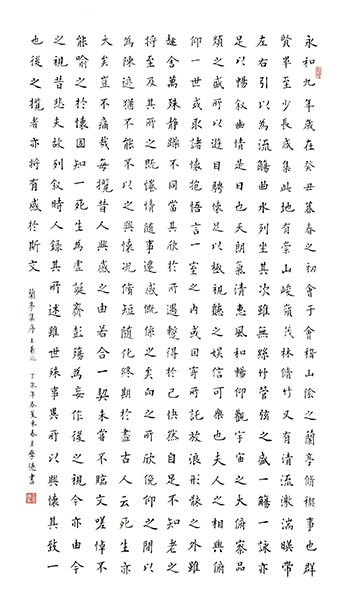 永和九年歲在癸丑暮春之初會于會稽山陰之蘭亭脩禊事也群
賢畢至少長咸集此地有崇山峻嶺茂林脩竹又有清流激湍暎帶
左右引以為流觴曲水列坐其次雖無絲竹管弦之盛一觴一詠亦
足以暢敘幽情是日也天朗氣清惠風和暢仰觀宇宙之大俯察品
類之盛所以遊目騁懷足以極視聽之娛信可樂也夫人之相與俯
仰一世或取諸懷抱悟言一室之內或因寄所託放浪形骸之外雖
趣舍萬殊靜躁不同當其欣於所遇蹔得於己快然自足不知老之
將至及其所之既惓情隨事遷感慨係之矣向之所欣俛仰之間以
為陳迹猶不能不以之興懷況脩短隨化終期於盡古人云死生亦
大矣豈不痛哉每攬昔人興感之由若合一契未嘗不臨文嗟悼不
能喻之於懷固知一死生為虛誕齊彭殤為妄作後之視今亦由今
之視昔悲夫故列敘時人錄其所述雖世殊事異所以興懷其致一
也後之攬者亦將有感於斯文
蘭亭集序王羲之 年春 王學德書